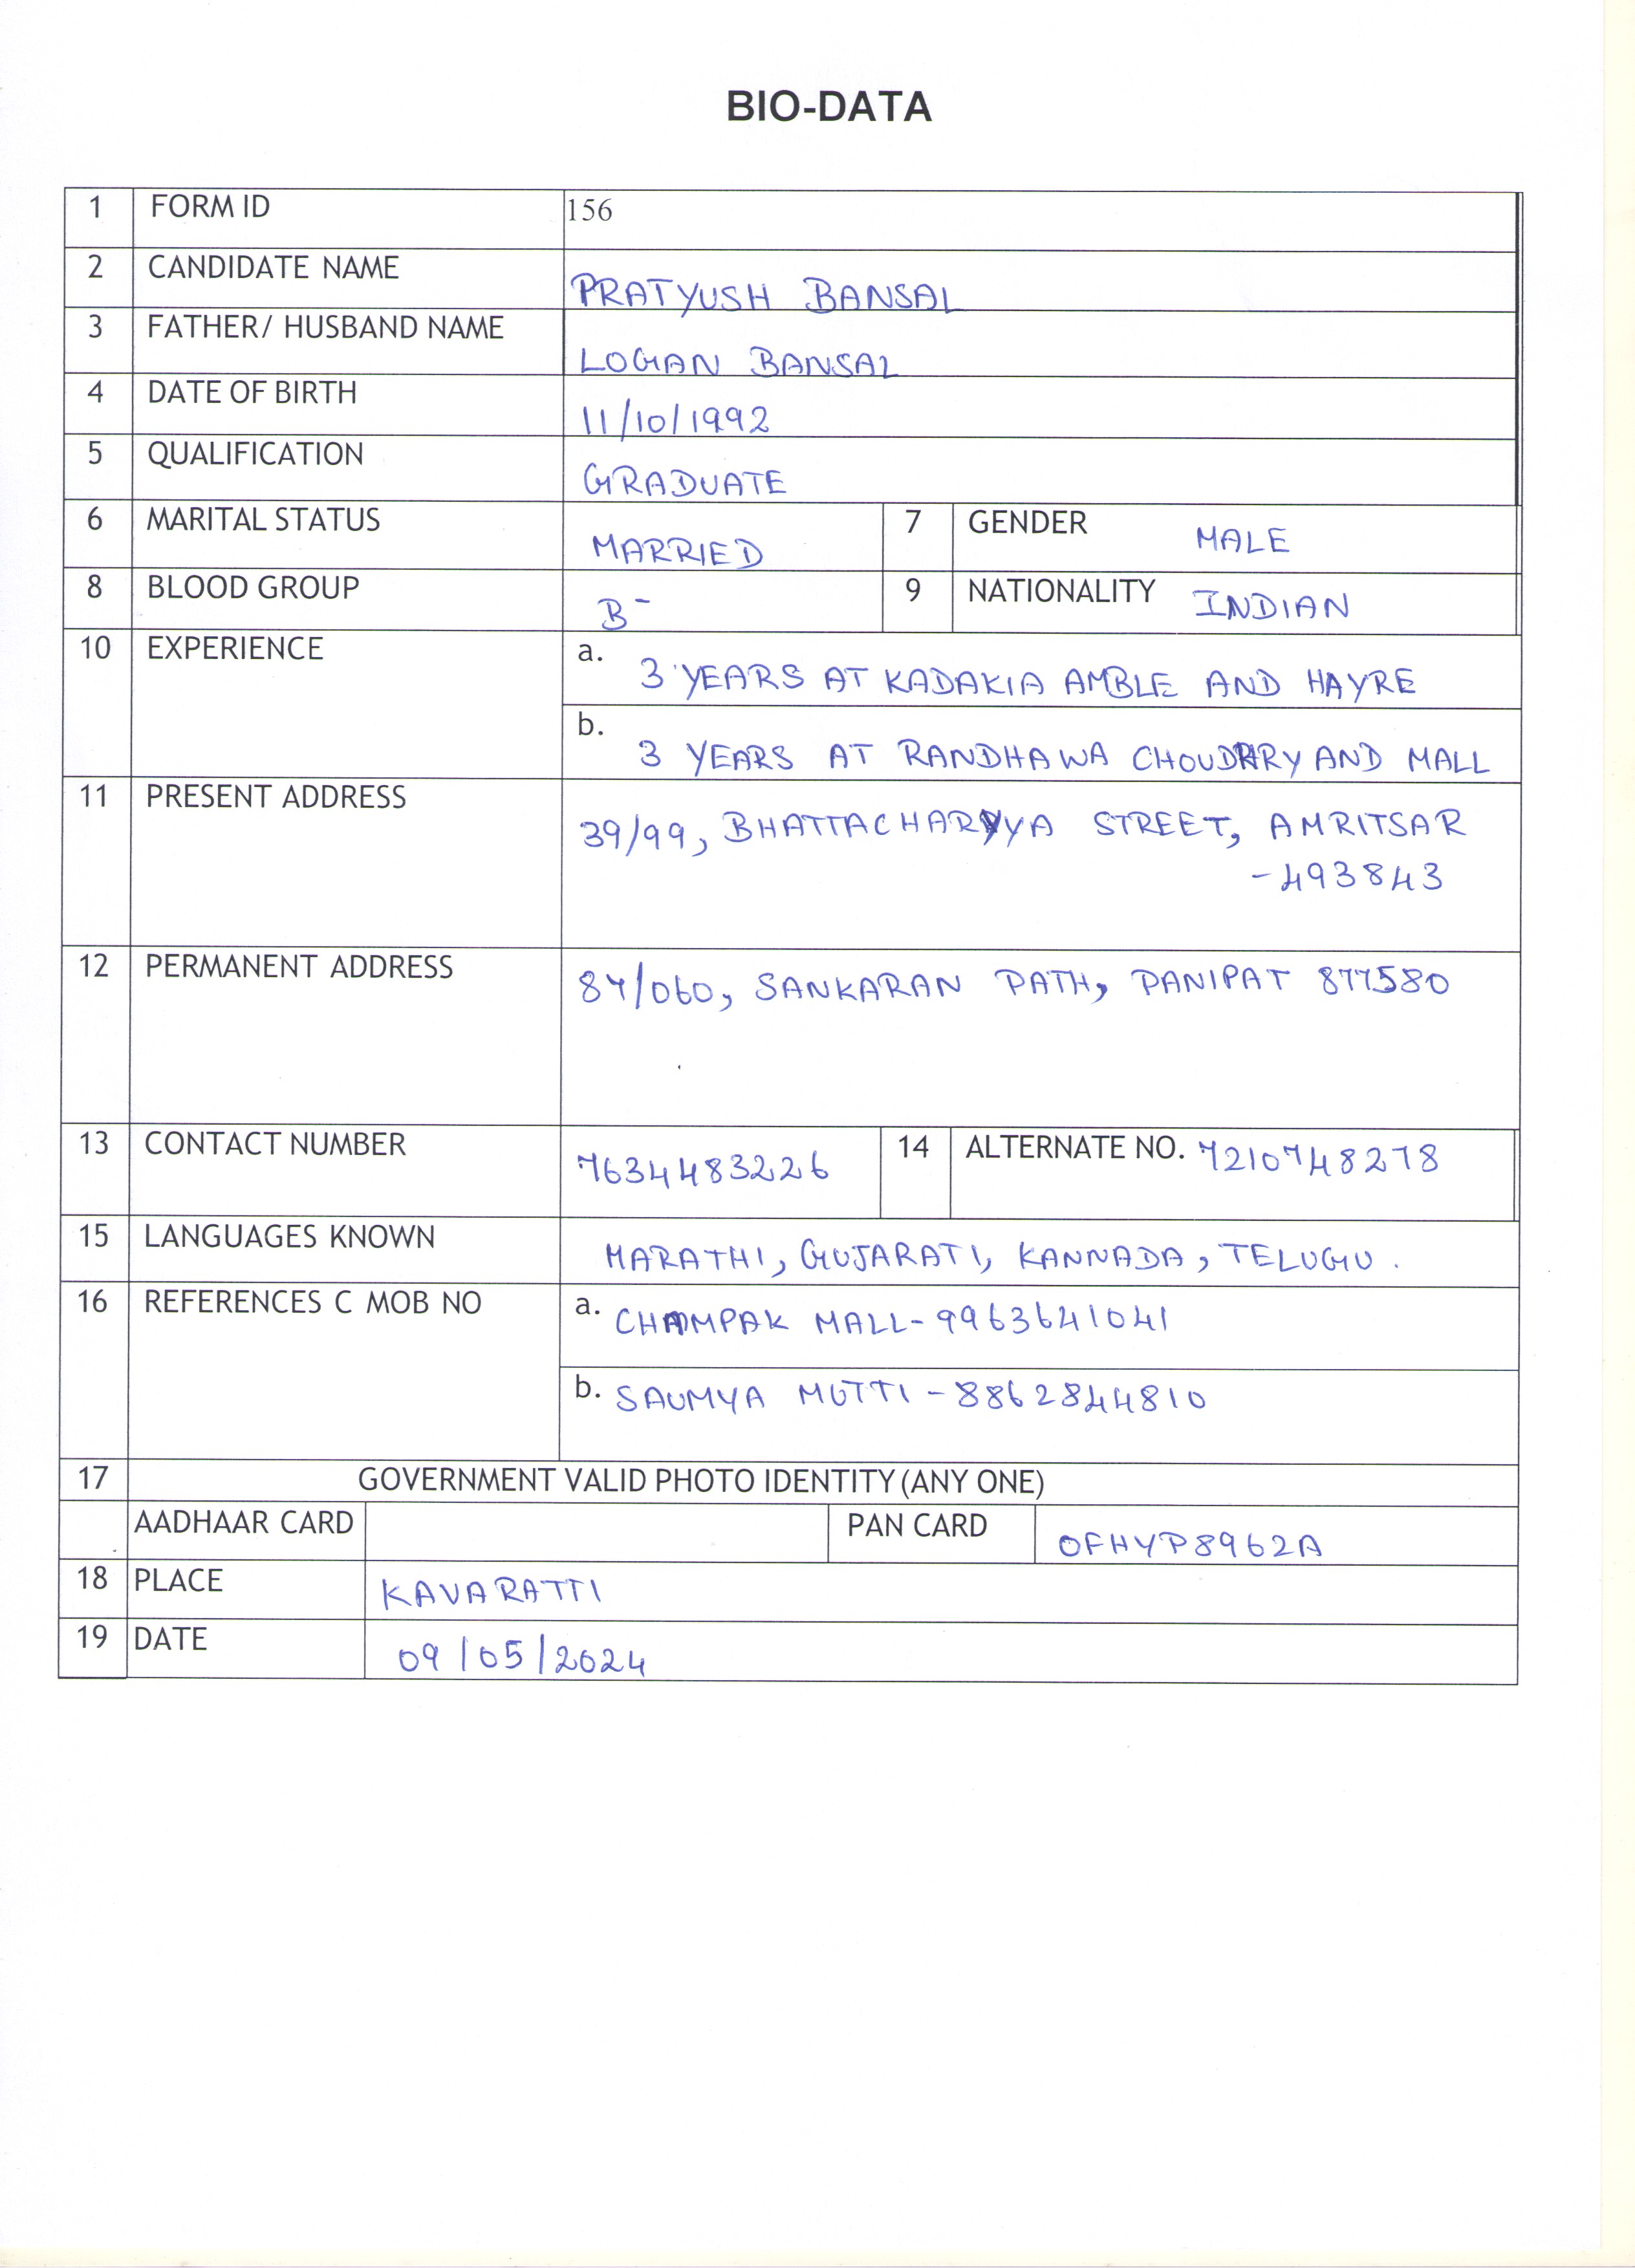 BIO-DATA
1 FORM ID 156
2 CANDIDATE NAME PRATYUSH BANSAL
3 FATHER/ HUSBAND NAME LOGAN BANSAL
4 DATE OF BIRTH 11/10/1992
5 QUALIFICATION GRADUATE
6 MARITAL STATUS MARRIED 7 GENDER MALE
8 BLOOD GROUP B- 9 NATIONALITY INDIAN
10 EXPERIENCE a. 3 YEARS AT KADAKIA AMBLE AND HAYRE
b. 3 YEARS AT RANDHAWA CHOUDHRY AND MALL
11 PRESENT ADDRESS 39/99, BHATTACHARYYA STREET, AMRITSAR
-493843
12 PERMANENT ADDRESS 87/060, SANKARAN PATH, PANIPAT 877580
13 CONTACT NUMBER 7634483226 14 ALTERNATE NO. 7210748278
15 LANGUAGES KNOWN MARATHI, GUJARATI, KANNADA, TELUGU.
16 REFERENCES C MOB NO a. CHAMPAK MALL-9963641041
b. SAUMYA MUTTI-8862844810
17 GOVERNMENT VALID PHOTO IDENTITY (ANY ONE)
AADHAAR CARD PAN CARD OFHYP8962A
18 PLACE KAVARATTI
19 DATE 09/05/2024